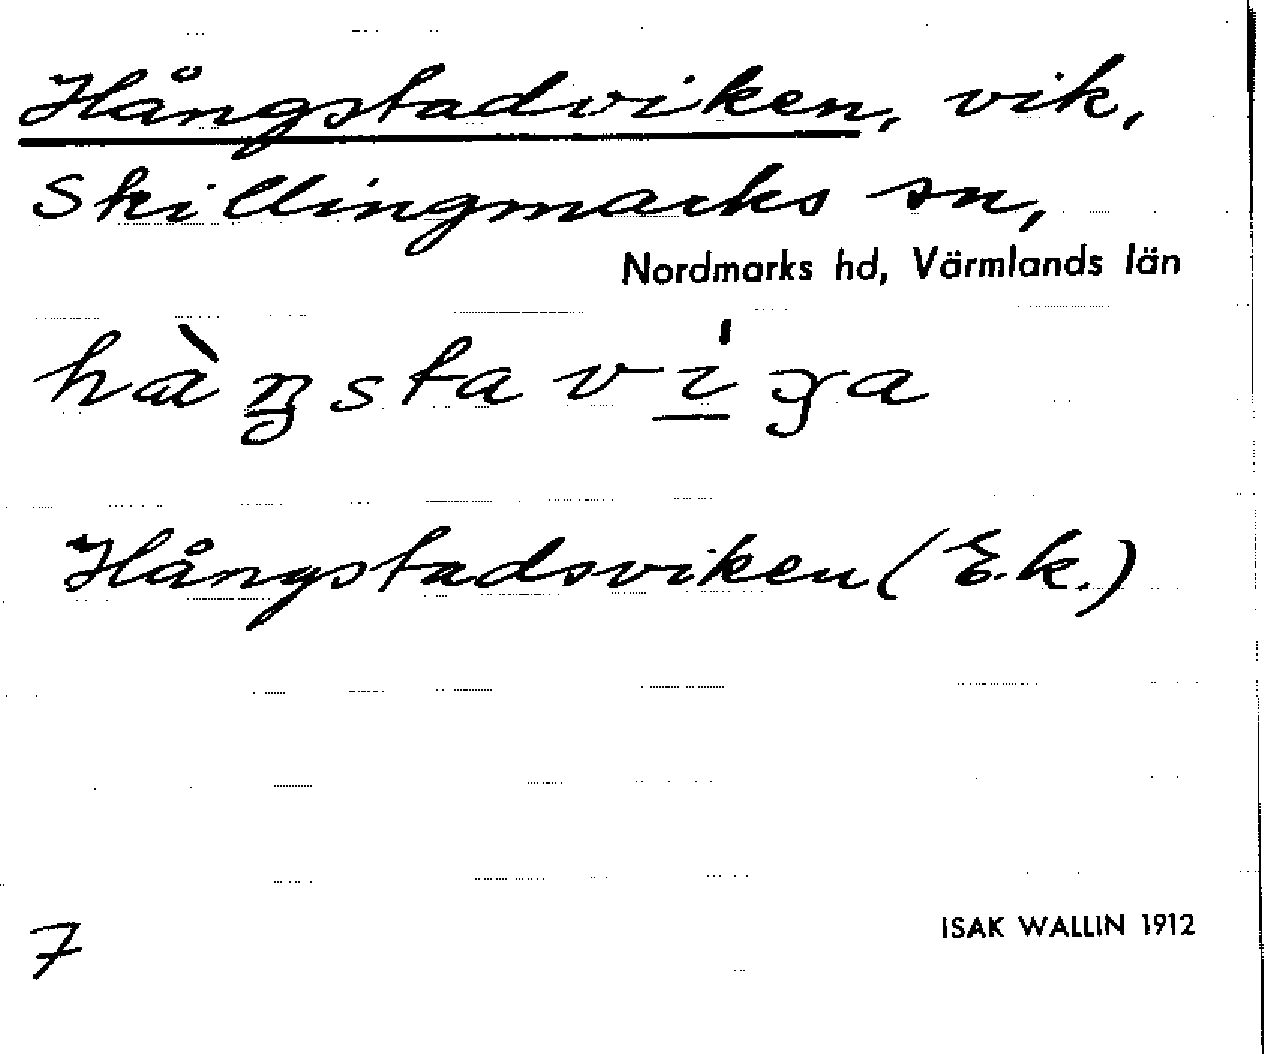 Hångstadviken, vik,
Skillingmarks sn,
Nordmarks hd, Värmlands län
hàŋstavíga
Hångstadsviken (E.k.)
7
ISAK WALLIN 1912